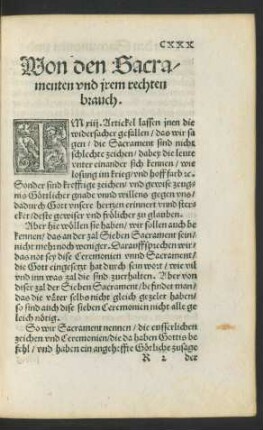 CXXX
Von den Sacra-
menten vnd jrem rechten
brauch.
IM xiij. Artickel lassen jnen die
widersacher gefallen / das wir sa
gen / die Sacrament sind nicht
schlechte zeichen / dabey die leute
vnter einander sich kennen / wie
losung im krieg vnd hoff farb ꝛc.
Sonder sind krefftige zeichen / vnd gewisse zeug-
nis Göttlicher gnade vnnd willens gegen vns /
dadurch Gott vnsere hertzen erinnert vnd sterc
ket / deste gewisser vnd frölicher zu glauben.
Aber hie wöllen sie haben / wir sollen auch be
kennen / das an der zal Sieben Sacrament sein /
nicht mehr noch weniger. Darauff sprechen wir /
das not sey diese Ceremonien vnnd Sacrament /
die Gott eingesetzt hat durch sein wort / wie vil
vnd inn was zal die sind zuerhalten. Aber von
dieser zal der Sieben Sacrament / befindet man /
das die väter selbs nicht gleich gezelet haben /
so sind auch diese sieben Ceremonien nicht alle ge
leich nötig.
So wir Sacrament nennen / die eusserlichen
zeichen vnd Ceremonien / die da haben Gottis be
fehl / vnd haben ein angeheffte Götliche zusage
R 2 der